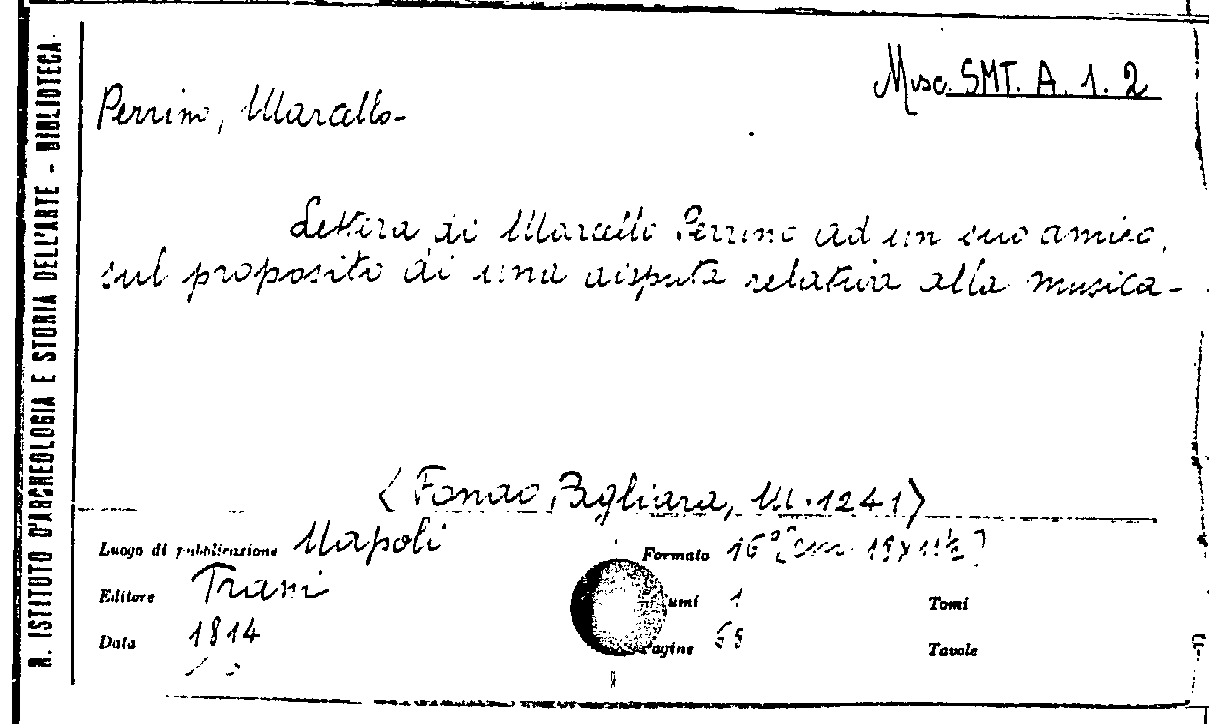 R. ISTITUTO D'ARCHEOLOGIA E STORIA DELL'ARTE - BIBLIOTECA
Misc. SMT. A. 1. 2
Perrino, Marcello-
Lettera di Marcello Perrino ad un suo amico,
sul proposito di una disputa relativa alla musica-
<Fondo Pagliara, M.1241>
Luogo di pubblicazione Napoli
Formato 16° [cm. 19x11½]
Editore Trani
Volumi 1
Tomi
Data 1814
Pagine 68
Tavole